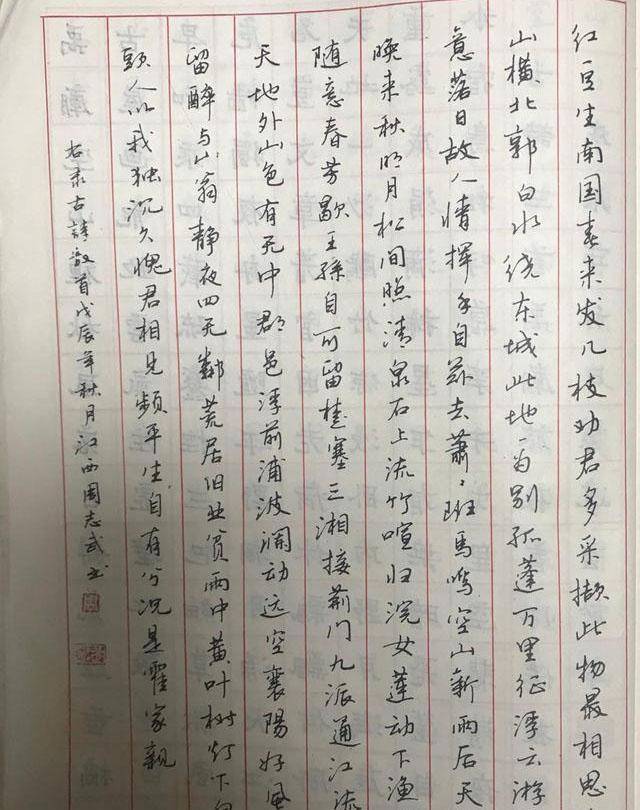 红豆生南国春来发几枝劝君多采撷此物最相思
山横北郭白水绕东城此地一为别孤蓬万里征浮云游
意落日故人情挥手自兹去萧々班马鸣空山新雨后天
晚来秋明月松间照清泉石上流竹喧归浣女莲动下渔
随意春芳歇王孙自可留楚塞三湘接荆门九派通江流
天地外山色有无中郡邑浮前浦波澜动远空襄陽好风
留醉与山翁静夜四无鄰荒居旧业贫雨中黄叶树灯下白
頭人以我独沉久愧君相见频平生自有分况是霍家親
右录古詩数首戊辰年秋月江西周志武书